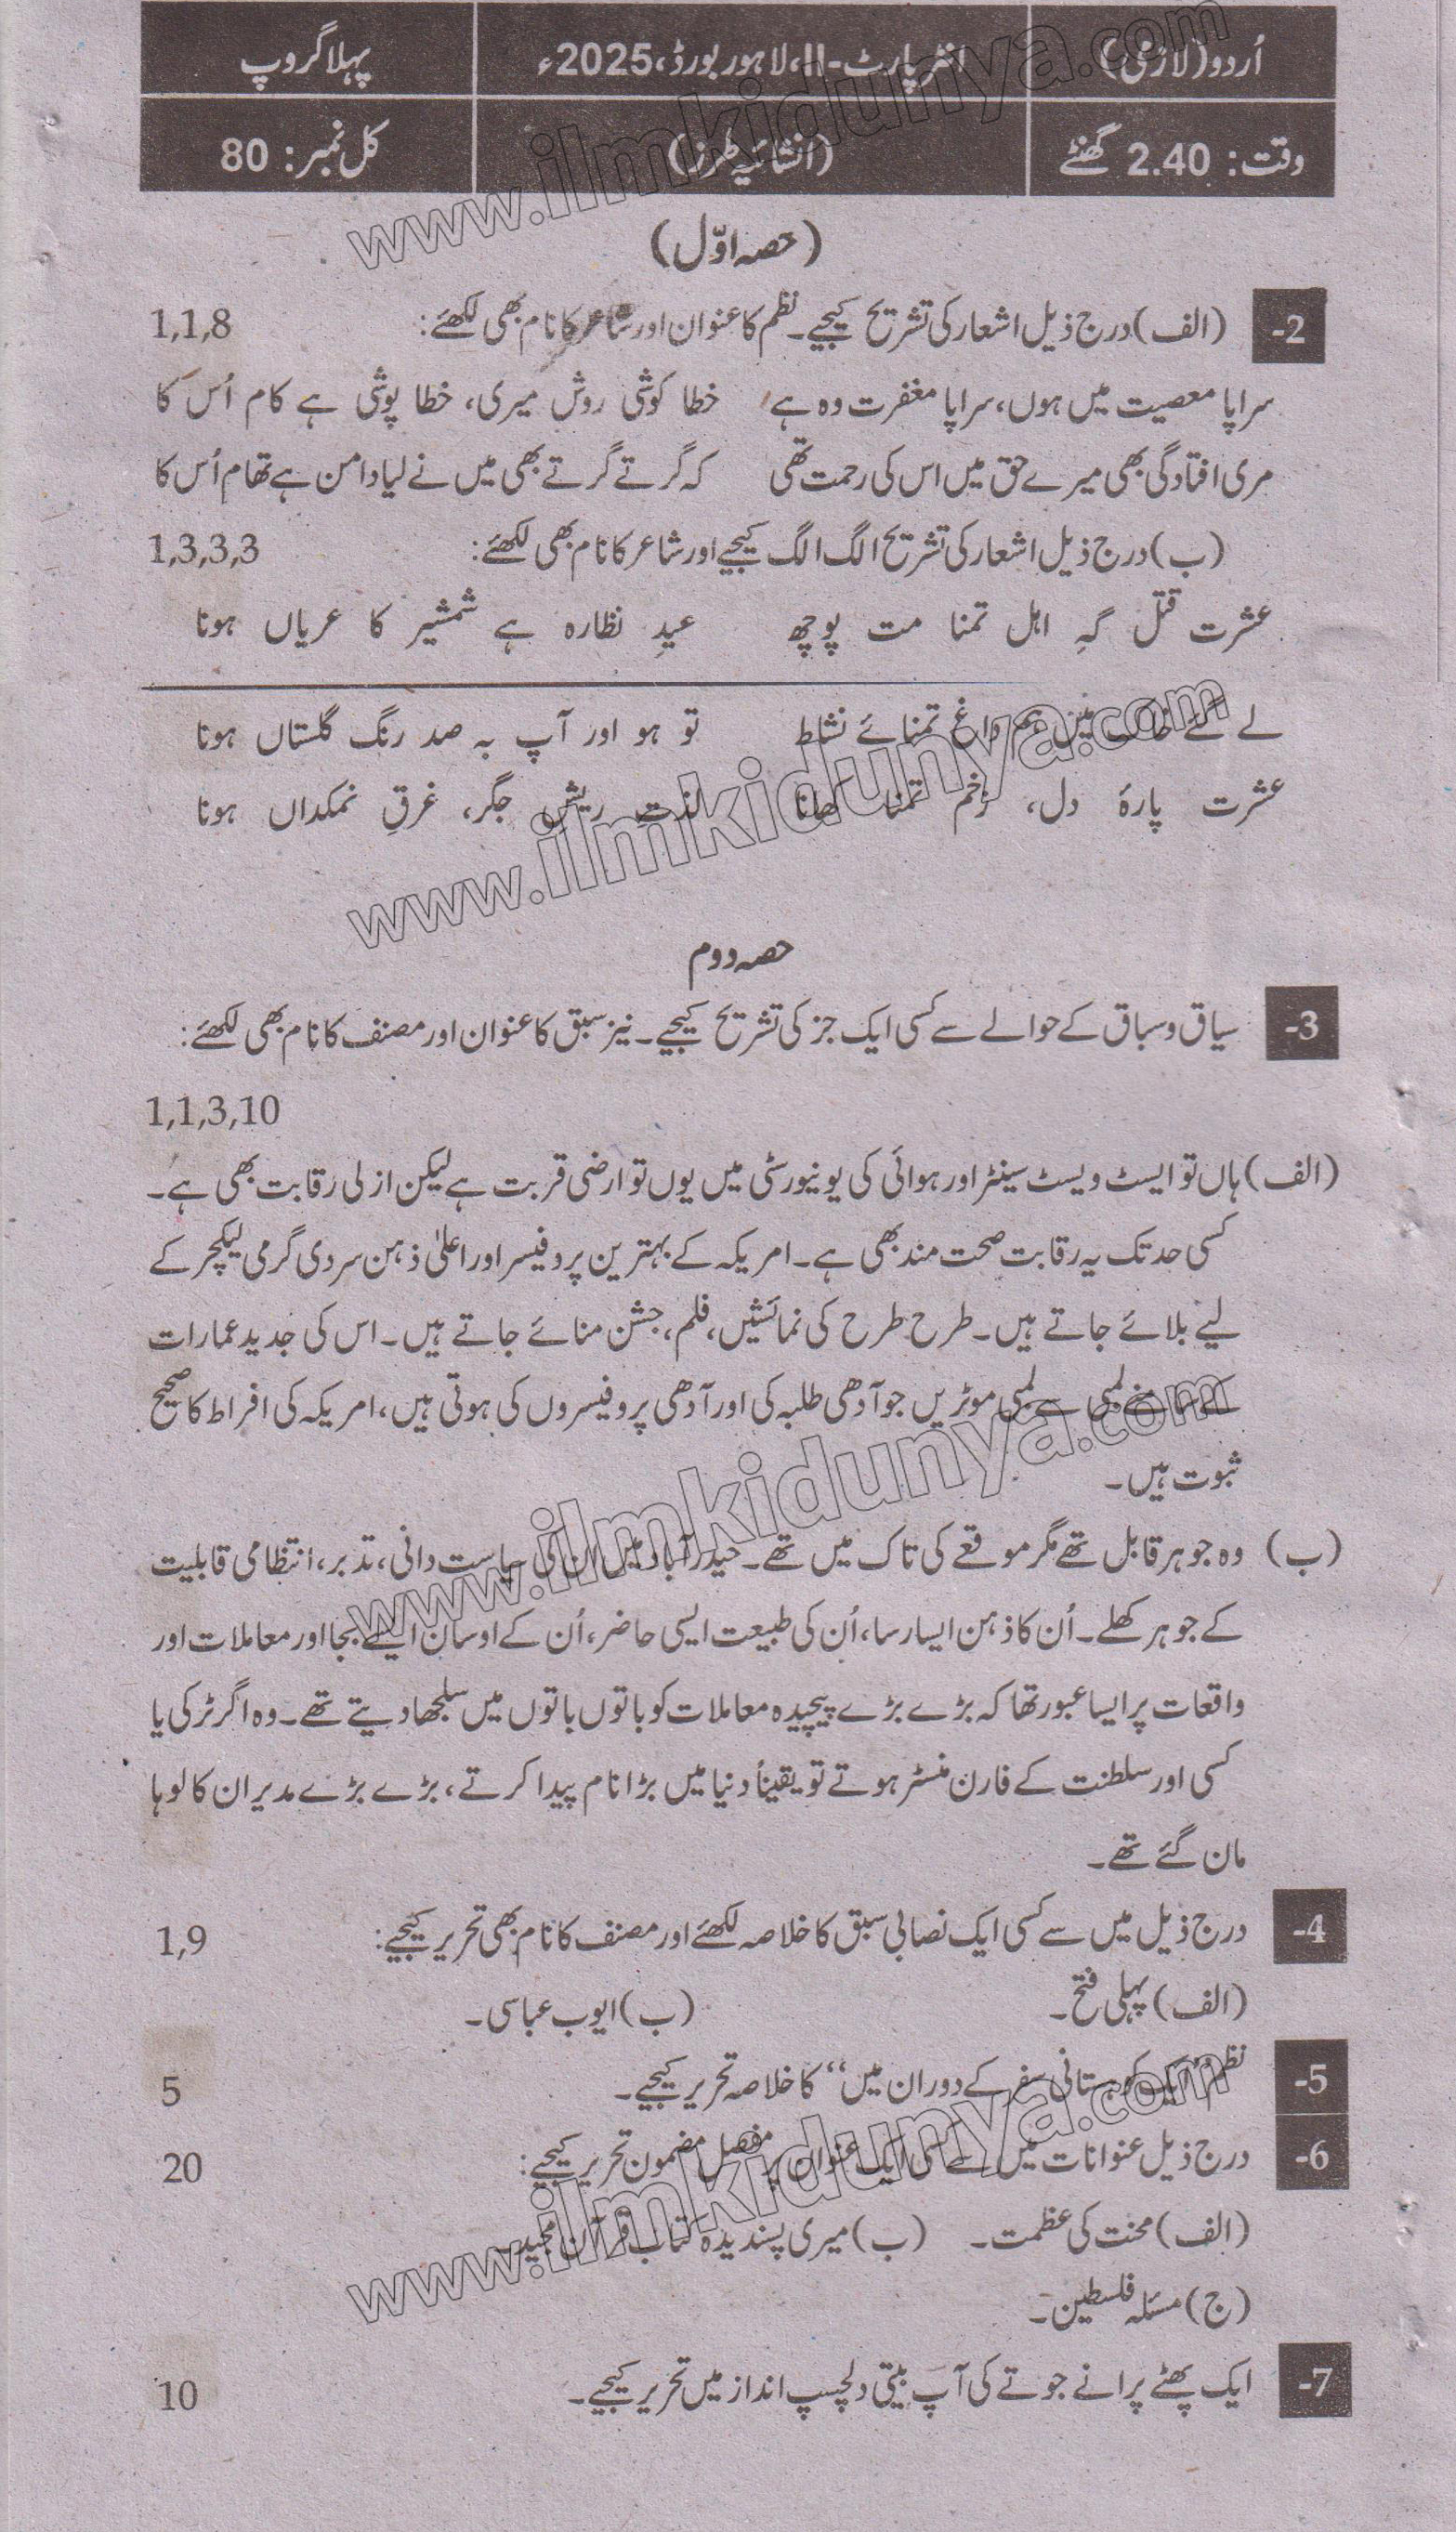 اُردو (لازمی) انٹر پارٹ-II، لاہور بورڈ، 2025ء پہلا گروپ
وقت: 2.40 گھنٹے (انشائیہ طرز) کل نمبر: 80
(حصہ اوّل)
2- (الف) درج ذیل اشعار کی تشریح کیجیے۔ نظم کا عنوان اور شاعر کا نام بھی لکھئے: 1,1,8
سراپا معصیت میں ہوں، سراپا مغفرت وہ ہے خطا کوشی روش میری، خطا پوشی ہے کام اُس کا
مری افتادگی بھی میرے حق میں اس کی رحمت تھی کہ گرتے گرتے بھی میں نے لیا دامن ہے تھام اُس کا
(ب) درج ذیل اشعار کی تشریح الگ الگ کیجیے اور شاعر کا نام بھی لکھئے: 1,3,3,3
عشرت قتل گہِ اہل تمنا مت پوچھ عیدِ نظارہ ہے شمشیر کا عریاں ہونا
لے گئے خاک میں ہم داغِ تمنائے نشاط تو ہو اور آپ بہ صد رنگ گلستاں ہونا
عشرت پارۂ دل، زخم تمنا کھانا لذت ریش جگر، غرقِ نمکداں ہونا
حصہ دوم
3- سیاق و سباق کے حوالے سے کسی ایک جز کی تشریح کیجیے۔ نیز سبق کا عنوان اور مصنف کا نام بھی لکھئے:
1,1,3,10
(الف) ہاں تو ایسٹ ویسٹ سینٹر اور ہوائی کی یونیورسٹی میں یوں تو ارضی قربت ہے لیکن ازلی رقابت بھی ہے۔
کسی حد تک یہ رقابت صحت مند بھی ہے۔ امریکہ کے بہترین پروفیسر اور اعلیٰ ذہن سردی گرمی لیکچر کے
لیے بلائے جاتے ہیں۔ طرح طرح کی نمائشیں، فلم، جشن منائے جاتے ہیں۔ اس کی جدید عمارات
کے سامنے لمبی سے لمبی موٹریں جو آدھی طلبہ کی اور آدھی پروفیسروں کی ہوتی ہیں، امریکہ کی افراط کا صحیح
ثبوت ہیں۔
(ب) وہ جوہر قابل تھے مگر موقعے کی تاک میں تھے۔ حیدر آباد میں ان کی سیاست دانی، تدبر، انتظامی قابلیت
کے جوہر کھلے۔ اُن کا ذہن ایسا رسا، اُن کی طبیعت ایسی حاضر، اُن کے اوسان ایسے بجا اور معاملات اور
واقعات پر ایسا عبور تھا کہ بڑے بڑے پیچیدہ معاملات کو باتوں باتوں میں سلجھا دیتے تھے۔ وہ اگر ٹرکی یا
کسی اور سلطنت کے فارن منسٹر ہوتے تو یقیناً دنیا میں بڑا نام پیدا کرتے، بڑے بڑے مدبر ان کا لوہا
مان گئے تھے۔
4- درج ذیل میں سے کسی ایک نصابی سبق کا خلاصہ لکھئے اور مصنف کا نام بھی تحریر کیجیے: 1,9
(الف) پہلی فتح۔ (ب) ایوب عباسی۔
5- نظم ’’ایک کوہستانی سفر کے دوران میں‘‘ کا خلاصہ تحریر کیجیے۔ 5
6- درج ذیل عنوانات میں سے کسی ایک عنوان پر مفصل مضمون تحریر کیجیے: 20
(الف) محنت کی عظمت۔ (ب) میری پسندیدہ کتاب قرآن مجید۔
(ج) مسئلہ فلسطین۔
7- ایک پھٹے پرانے جوتے کی آپ بیتی دلچسپ انداز میں تحریر کیجیے۔ 10
www.ilmkidunya.com
www.ilmkidunya.com
www.ilmkidunya.com
www.ilmkidunya.com